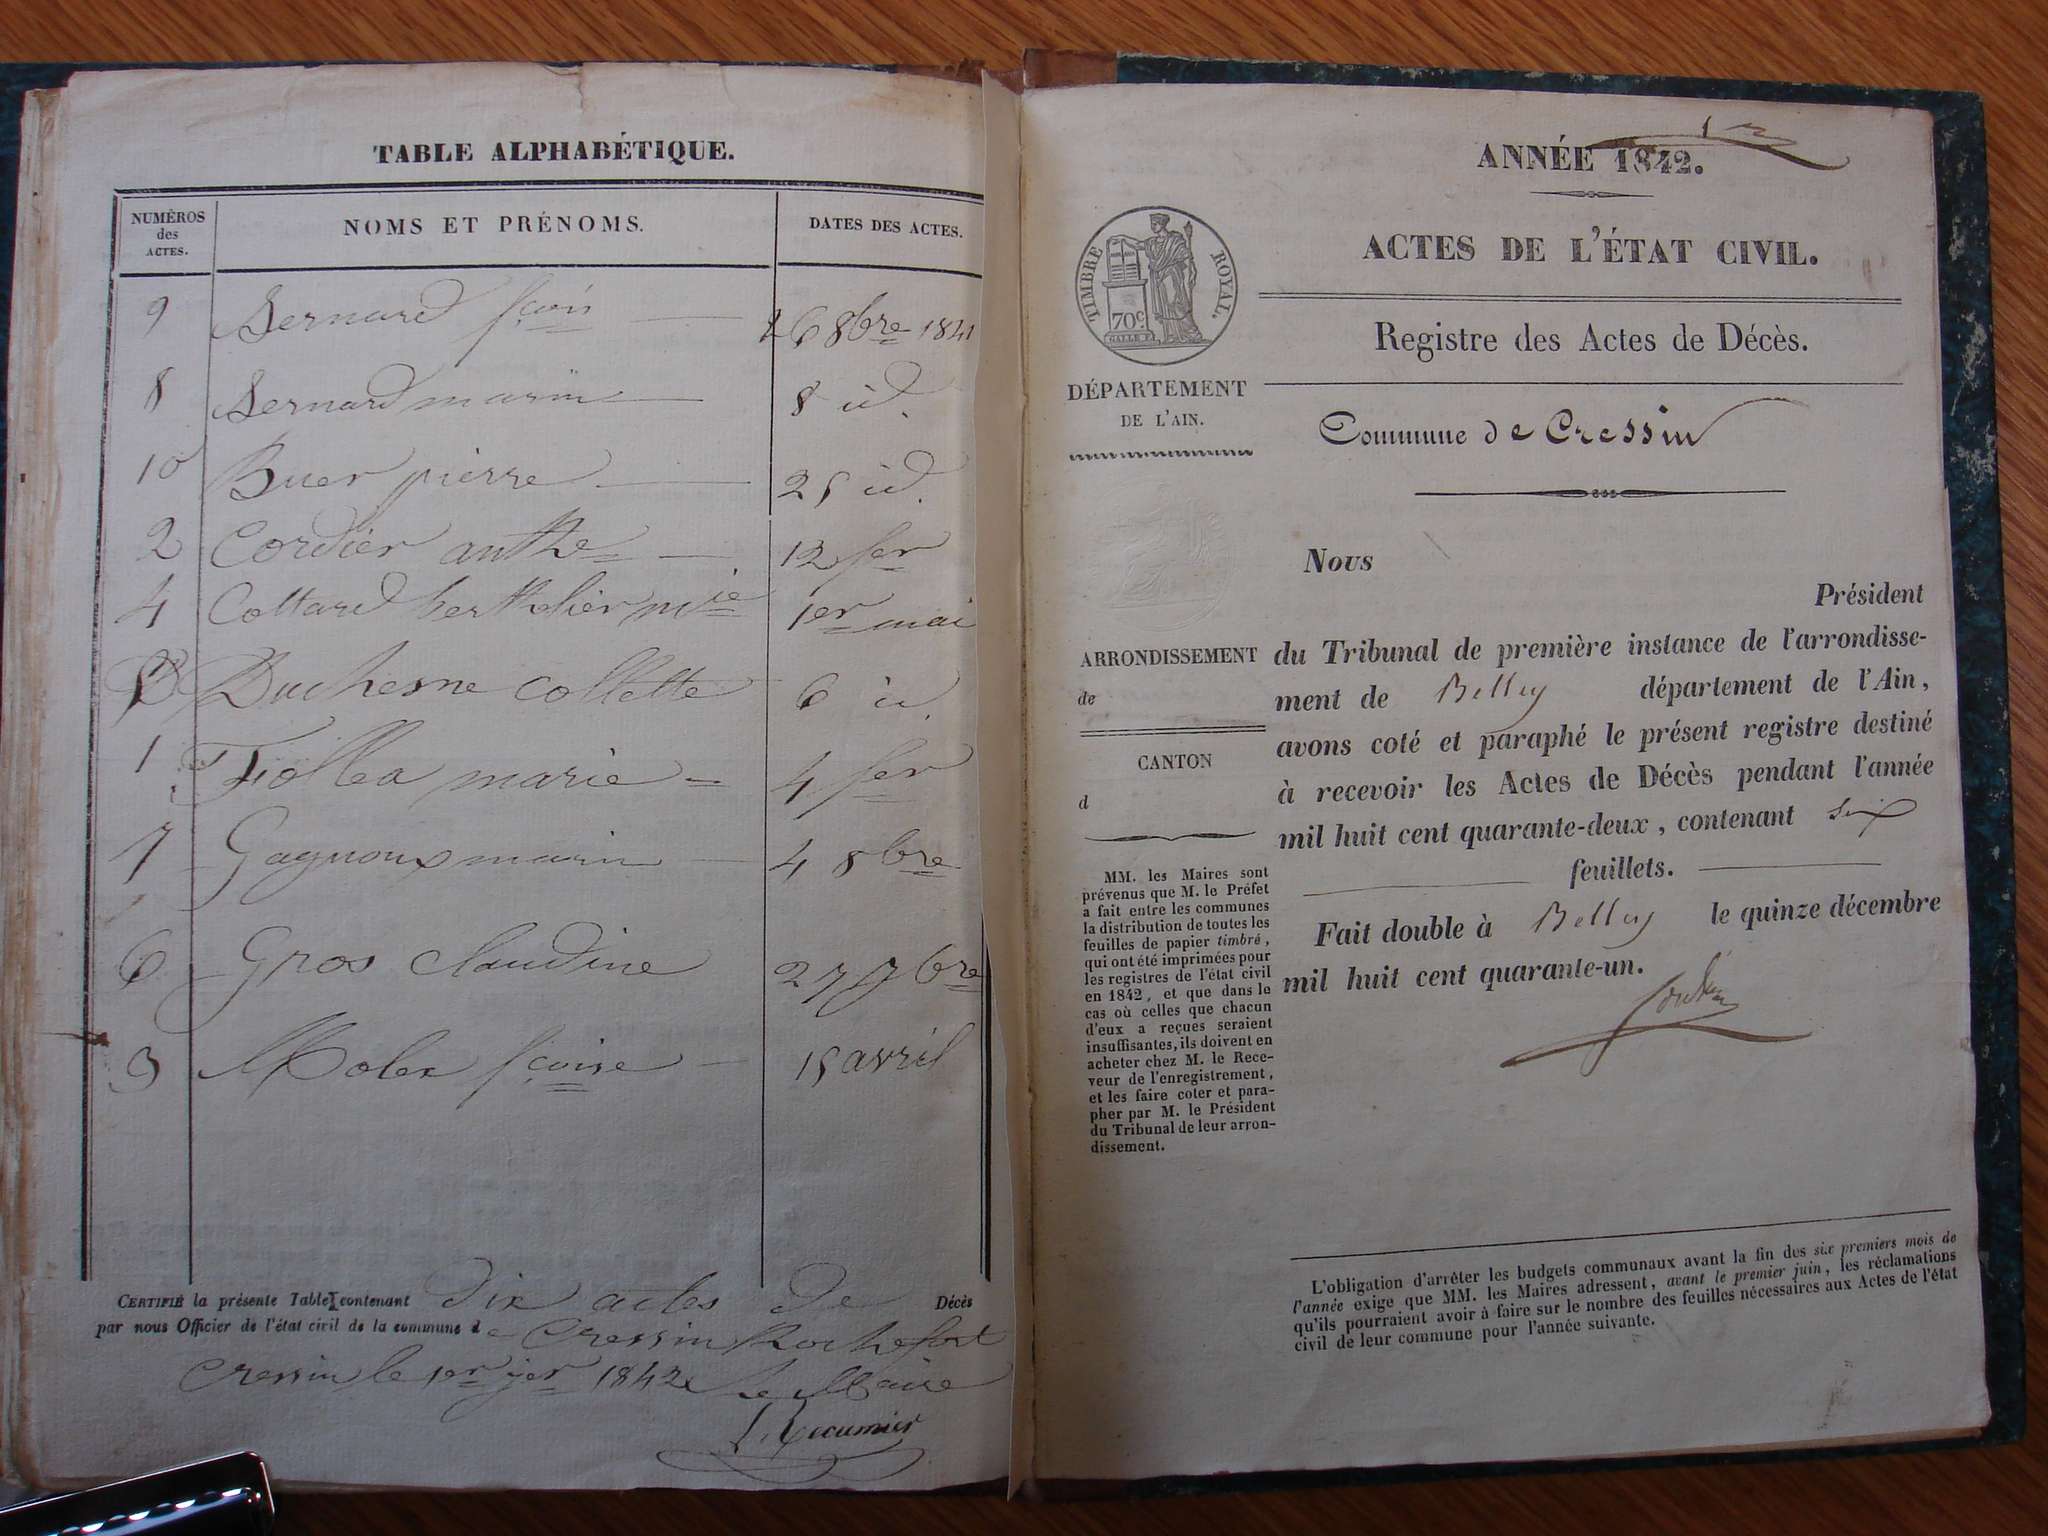 TABLE ALPHABÉTIQUE.
NUMÉROS
des
ACTES.
NOMS ET PRÉNOMS.
DATES DES ACTES.
9 Bernard fçois 26 8bre 1841
8 Bernard marin 8 id.
10 Buer pierre 25 id.
2 Cordier anthe 12 fer
4 Cottard berthelier mie 1er mai
5 Duchesne collette 6 id.
1 marie 4 fer
7 Gagnoux marin 4 8bre
6 Gros claudine 27 7bre
3 fçoise 15 avril
CERTIFIÉ la présente Table contenant dix actes de Décès
par nous Officier de l'état civil de la commune de Cressin Rochefort
Cressin le 1er jer 1842 Le Maire
Recumier
ANNÉE 1842.
ACTES DE L'ÉTAT CIVIL.
TIMBRE ROYAL.
70c
Registre des Actes de Décès.
DÉPARTEMENT
DE L'AIN.
Commune de Cressin
ARRONDISSEMENT
de
CANTON
d
MM. les Maires sont
prévenus que M. le Préfet
a fait entre les communes
la distribution de toutes les
feuilles de papier timbré,
qui ont été imprimées pour
les registres de l'état civil
en 1842, et que dans le
cas où celles que chacun
d'eux a reçues seraient
insuffisantes, ils doivent en
acheter chez M. le Rece-
veur de l'enregistrement,
et les faire coter et para-
pher par M. le Président
du Tribunal de leur arron-
dissement.
Nous
Président
du Tribunal de première instance de l'arrondisse-
ment de Belley département de l'Ain,
avons coté et paraphé le présent registre destiné
à recevoir les Actes de Décès pendant l'année
mil huit cent quarante-deux, contenant six
feuillets.
Fait double à Belley le quinze décembre
mil huit cent quarante-un.
L'obligation d'arrêter les budgets communaux avant la fin des six premiers mois de
l'année exige que MM. les Maires adressent, avant le premier juin, les réclamations
qu'ils pourraient avoir à faire sur le nombre des feuilles nécessaires aux Actes de l'état
civil de leur commune pour l'année suivante.